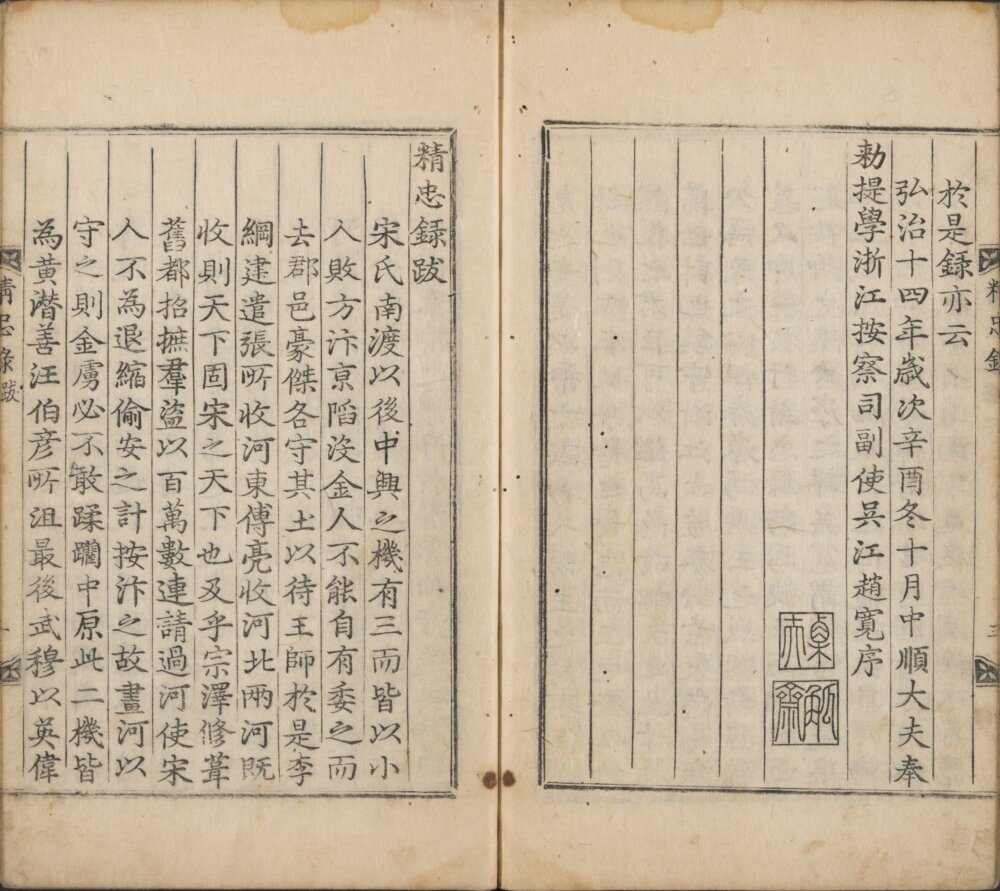 精忠錄
於是録亦云
弘治十四年歲次辛酉冬十月中順大夫奉
勑提學浙江按察司副使吳江趙寬序
精忠録跋
宋氏南渡以後中興之機有三而皆以小
人敗方汴京陷没金人不能自有委之而
去郡邑豪傑各守其土以待王師於是李
綱建遣張所收河東傅亮收河北兩河既
收則天下固宋之天下也及乎宗澤修葺
舊都招撫羣盜以百萬數連請過河使宋
人不為退縮偷安之計按汴之故畫河以
守之則金虜必不敢蹂躪中原此二機皆
為黃潛善汪伯彥所沮最後武穆以英偉
精忠錄跋